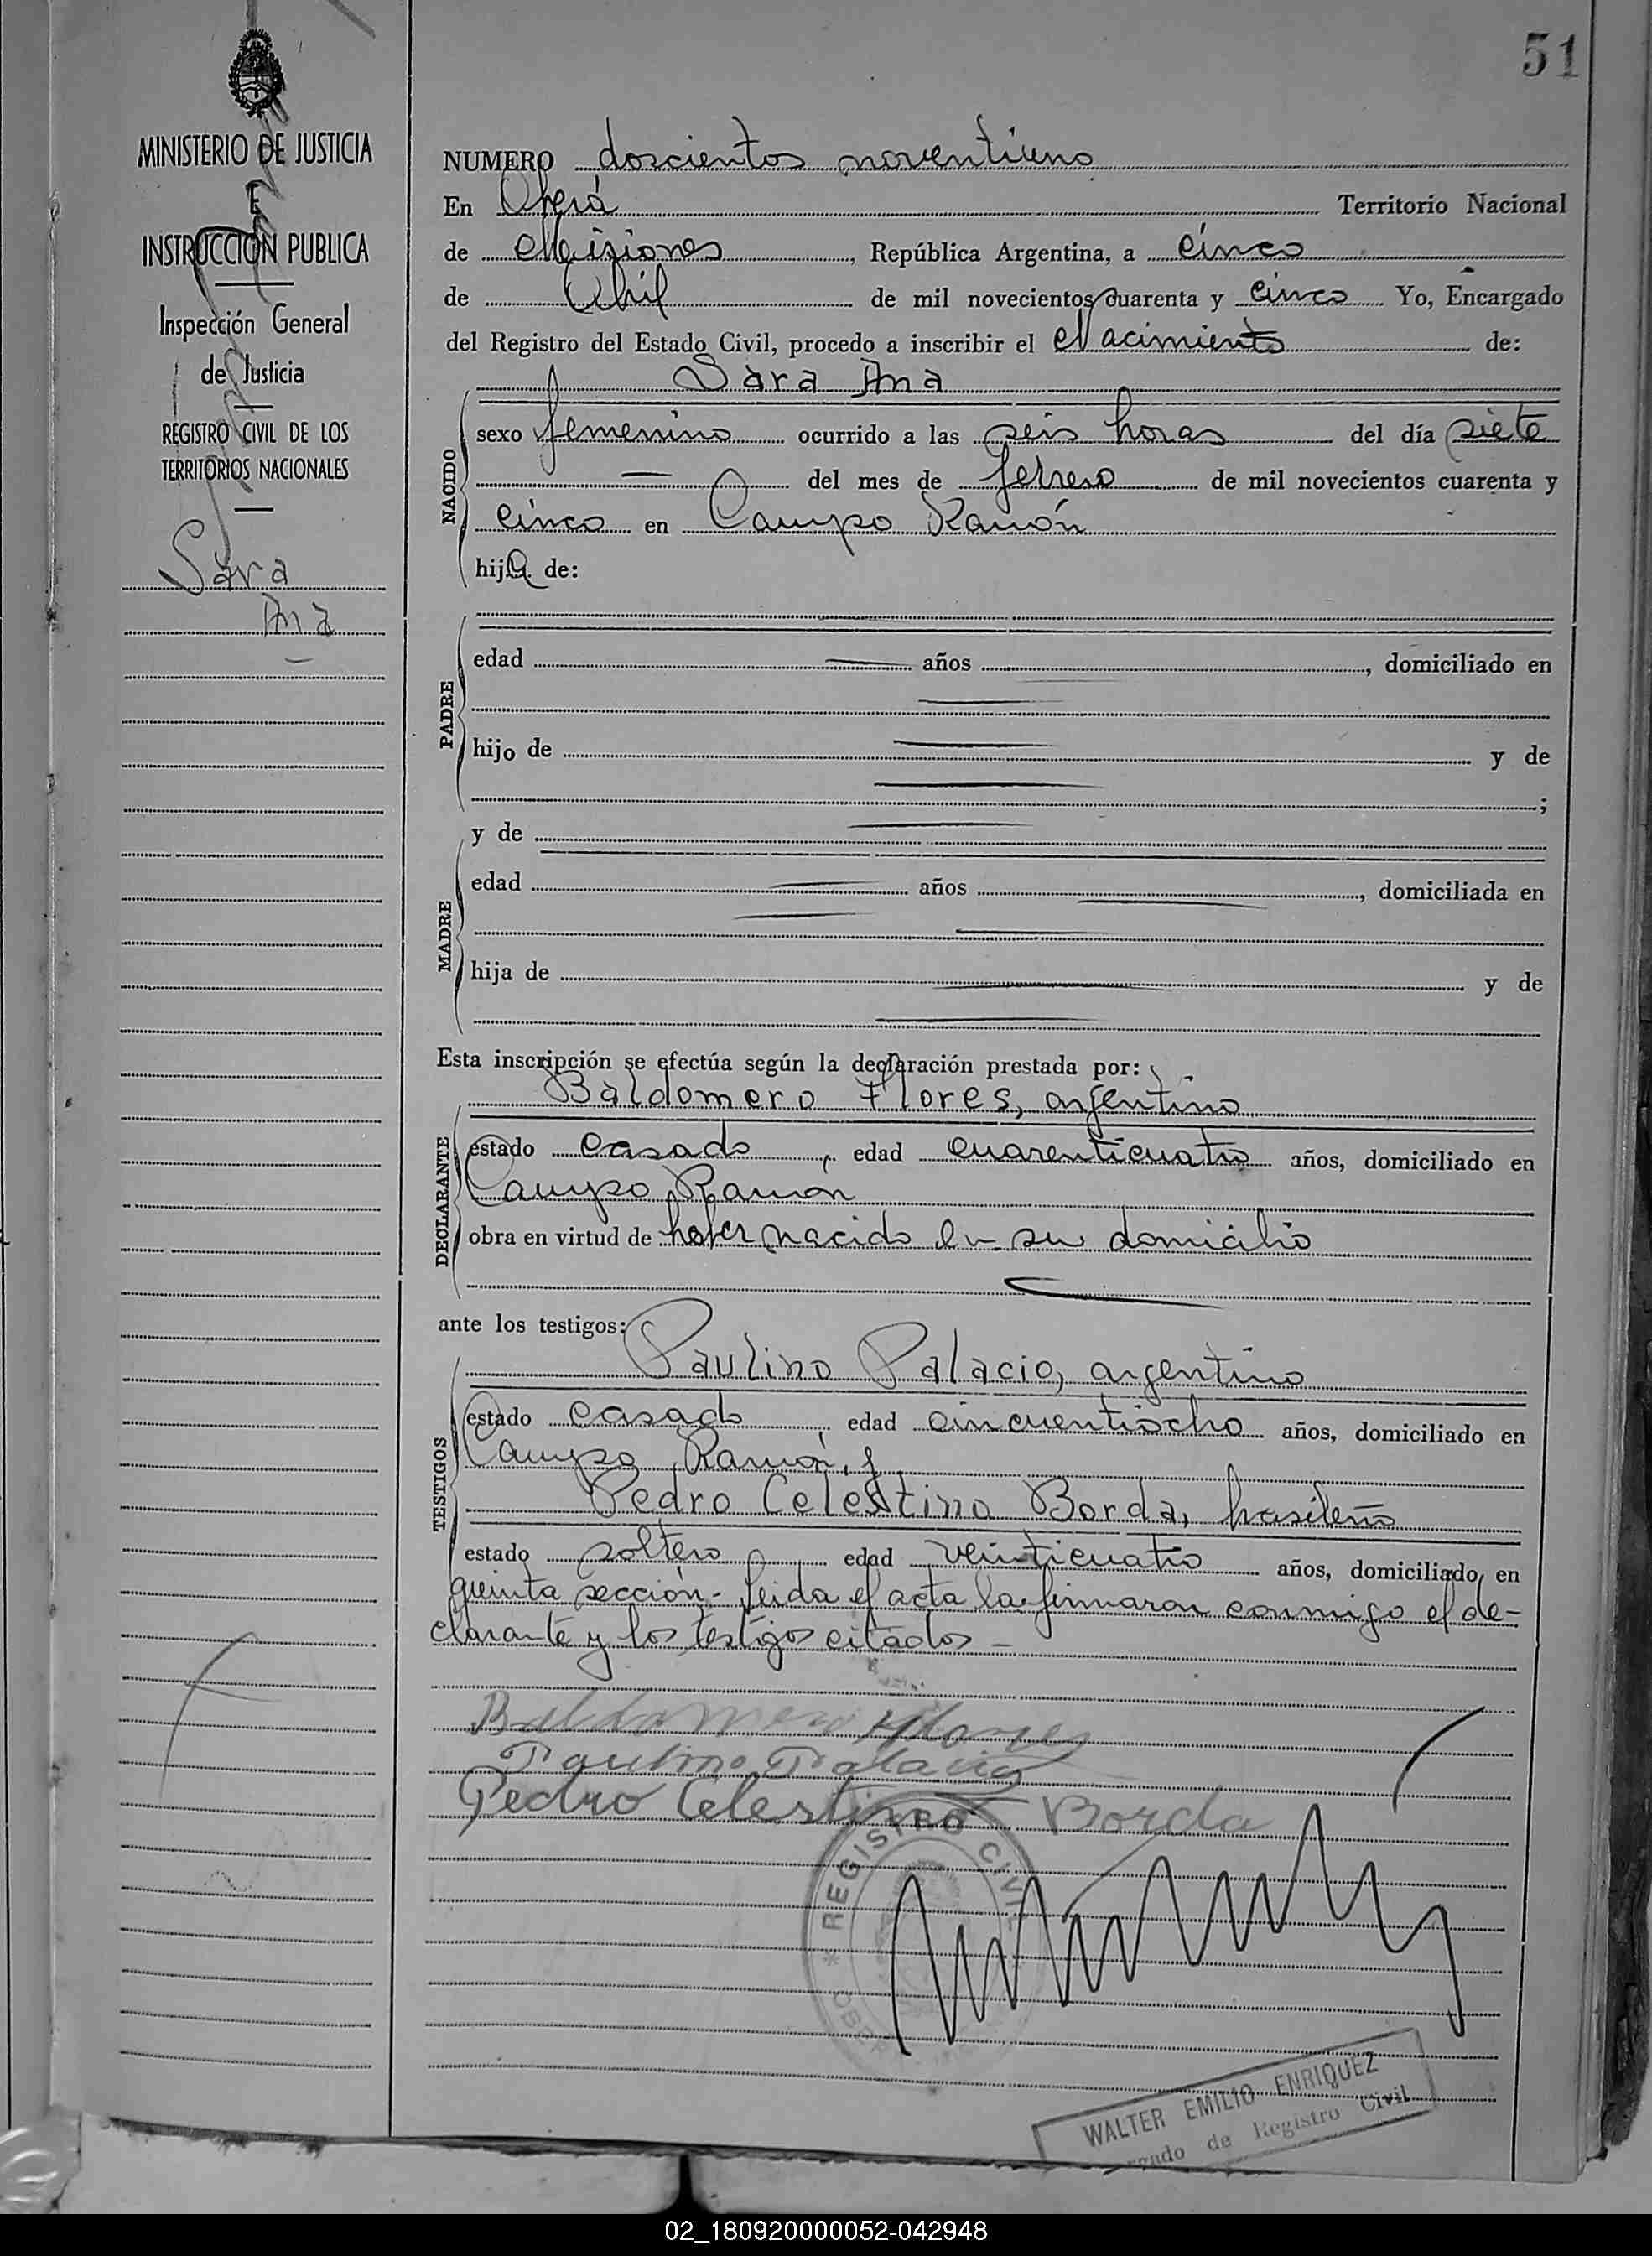 51
MINISTERIO DE JUSTICIA
E
INSTRUCCION PUBLICA
Inspección General
de Justicia
REGISTRO CIVIL DE LOS
TERRITORIOS NACIONALES
Sara
Ana
NUMERO doscientos noventiuno
En Oberá Territorio Nacional
de Misiones, República Argentina, a cinco
de Abril de mil novecientos cuarenta y cinco Yo, Encargado
del Registro del Estado Civil, procedo a inscribir el Nacimiento de:
Sara Ana
NACIDO
sexo femenino ocurrido a las seis horas del día siete
— del mes de febrero de mil novecientos cuarenta y
cinco en Campo Ramón
hija de:
PADRE
edad — años, domiciliado en
hijo de — y de
;
y de —
MADRE
edad — años —, domiciliada en
hija de — y de
Esta inscripción se efectúa según la declaración prestada por:
Baldomero Flores, argentino
DECLARANTE
estado casado, edad cuarenticuatro años, domiciliado en
Campo Ramon
obra en virtud de haber nacido en su domicilio
ante los testigos:
Paulino Palacio, argentino
TESTIGOS
estado casado, edad cincuentiocho años, domiciliado en
Campo Ramón, y
Pedro Celestino Borda, brasileño
estado soltero edad veinticuatro años, domiciliado en
quinta sección.- Leida el acta la firmaron conmigo el de-
clarante y los testigos citados -
Baldomero Flores
Paulino Palacio
Pedro Celestino Borda
* REGISTRO CIVIL
WALTER EMILIO ENRIQUEZ
de Registro Civil
02_180920000052-042948